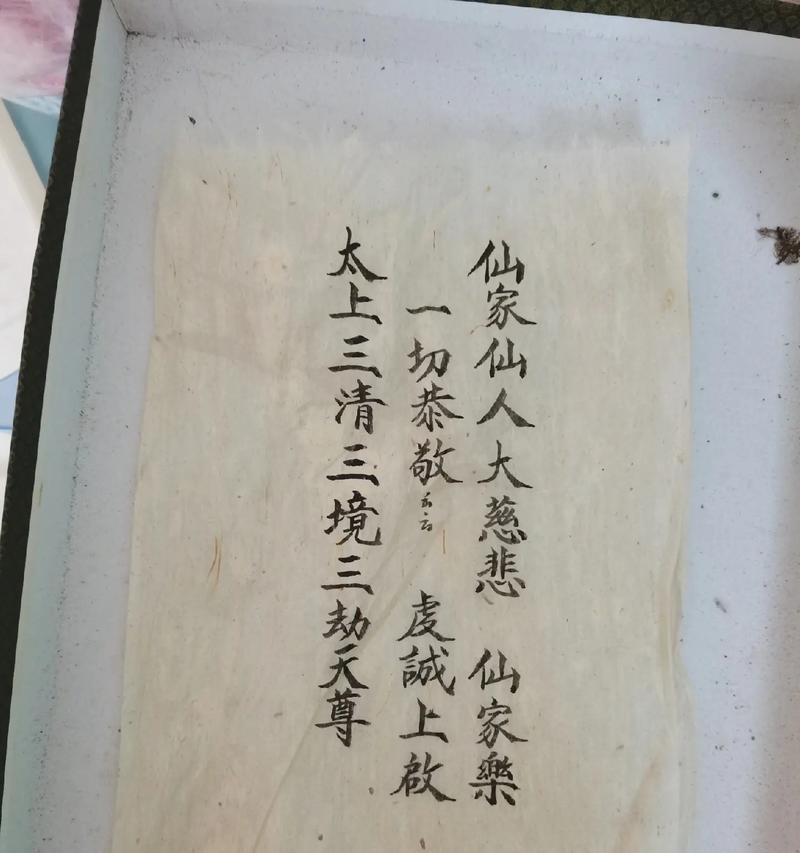 仙家仙人大慈悲 仙家樂
一切恭敬云云 虔誠上啟
太上三清三境三劫天尊